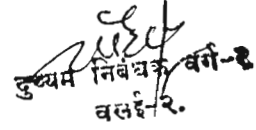 दुय्यम निबंधक वर्ग-२
वसई-२.